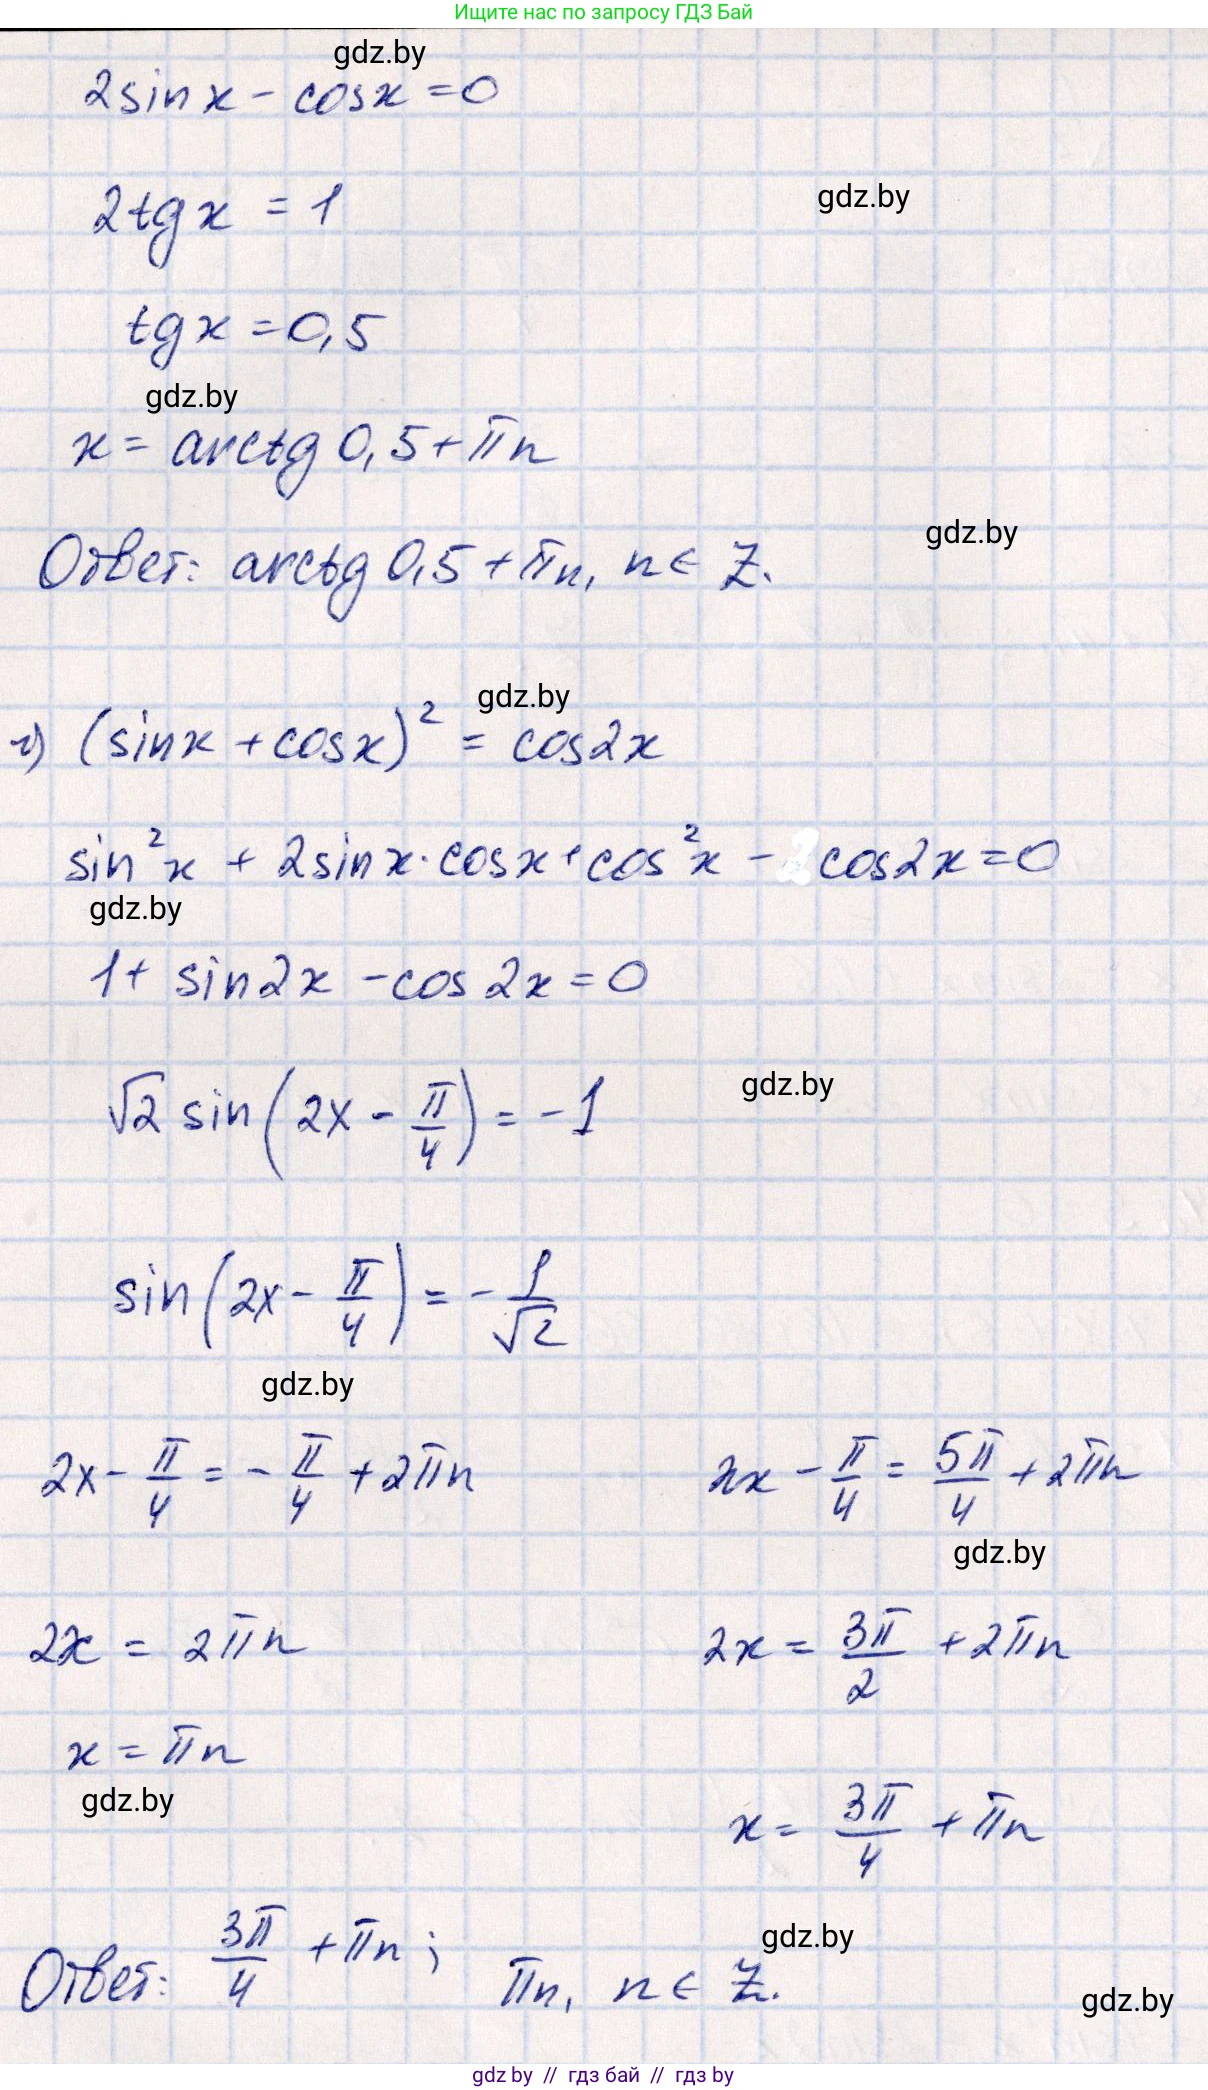 Ищите нас по запросу ГДЗ Бай
gdz.by
2sin x - cos x = 0
gdz.by
2tg x = 1
tg x = 0,5
gdz.by
x = arctg 0,5 + πn
gdz.by
Ответ: arctg 0,5 + πn, n ∈ Z.
gdz.by
г) (sin x + cos x)² = cos2x
sin²x + 2sin x · cos x + cos²x - cos2x = 0
gdz.by
1 + sin2x - cos 2x = 0
gdz.by
√2 sin(2x - π/4) = -1
sin(2x - π/4) = - 1/√2
gdz.by
2x - π/4 = - π/4 + 2πn     2x - π/4 = 5π/4 + 2πn
gdz.by
2x = 2πn     2x = 3π/2 + 2πn
x = πn
gdz.by
x = 3π/4 + πn
gdz.by
Ответ: 3π/4 + πn; πn, n ∈ Z.
gdz.by
gdz.by // гдз бай // гдз by